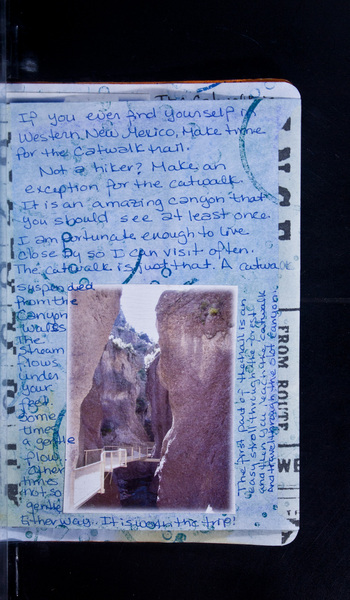 If you ever find yourself in
Western New Mexico, Make time
for the Catwalk trail.
Not a hiker? Make an
exception for the catwalk.
It is an amazing canyon that
you should see at least once.
I am fortunate enough to live
close by so I can visit often.
The catwalk is just that. A catwalk
suspended
from the
Canyon
walls
The
stream
flows
under
your
feet.
Some
times
a gentle
flow,
other
times
not so
gentle
Either way.. It is worth the trip!
The first part of the trail is an
easy stroll through the forest
and then you reach the catwalk
And travel through the slot canyon.
FROM ROUTE
WE